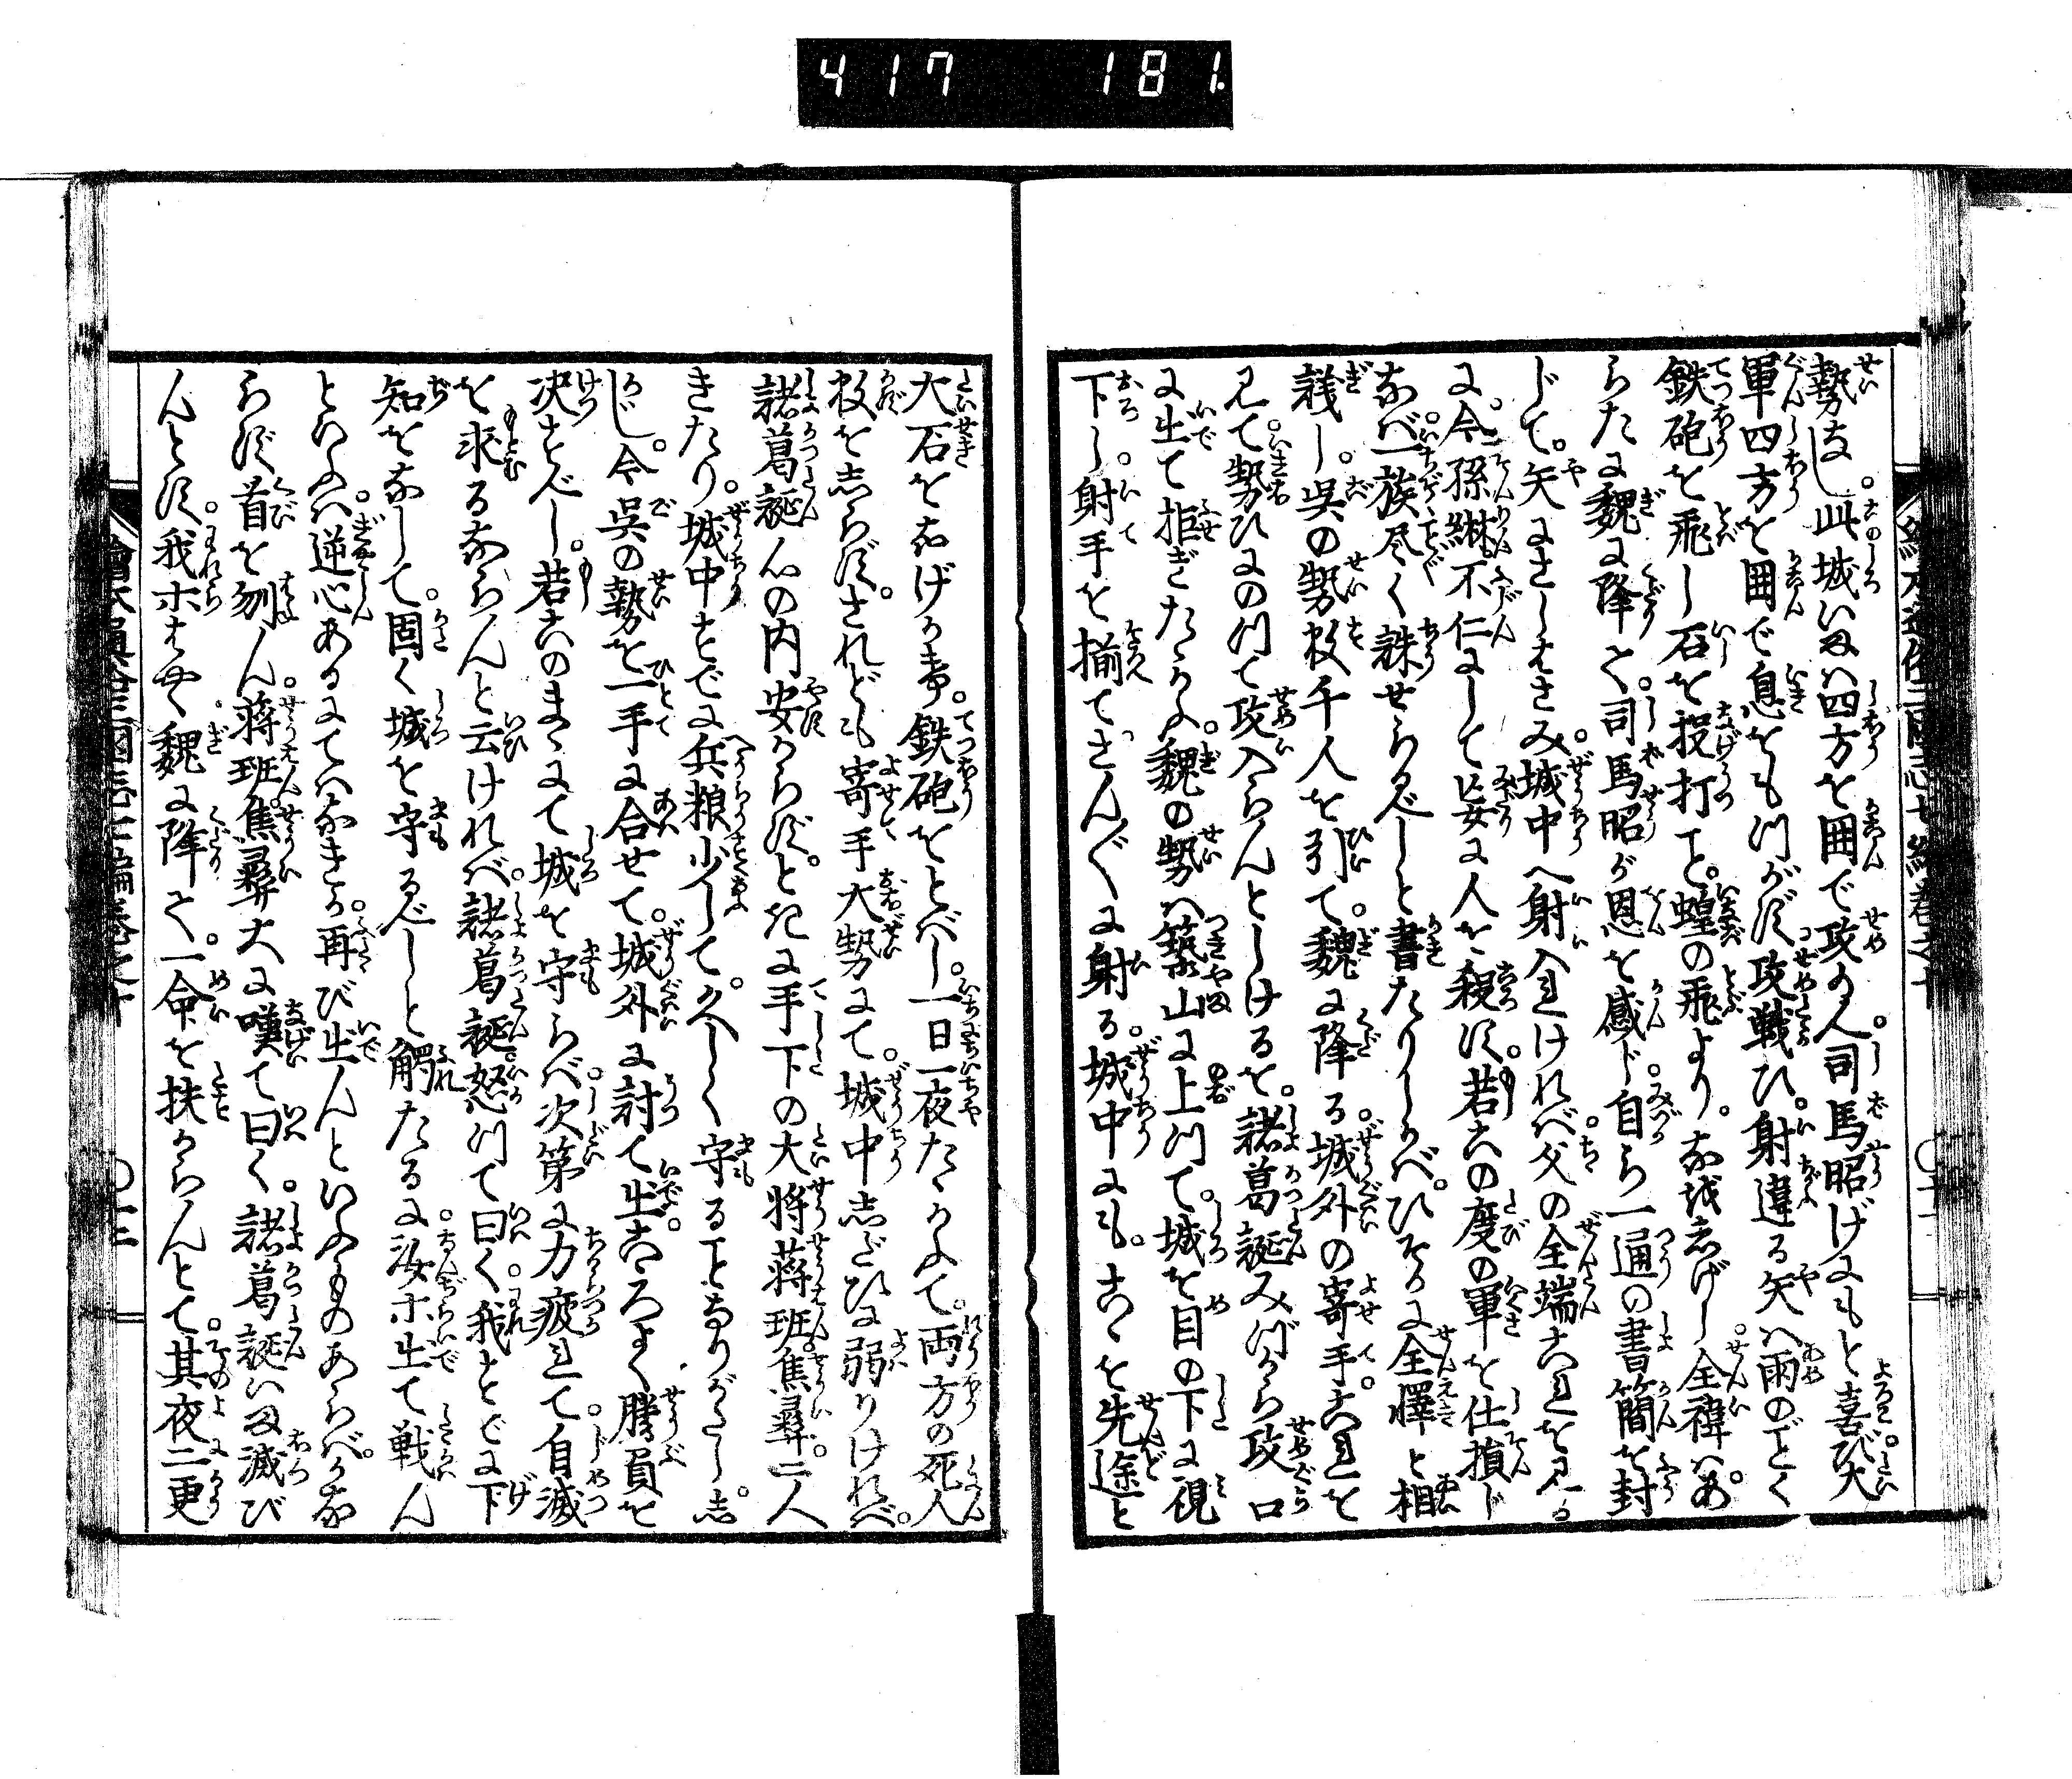 417 181
勢なし。此城いま四方を囲で攻る人。司馬昭げにもと喜び。大
軍四方を囲で息をもつがず攻戦ひ。射違る矢ハ雨のごとく
鉄砲を飛し石を投打こと。蝗の飛より。なほしげし。全禕ハ。あ
らたに魏に降て。司馬昭が恩を感じ。自ら一通の書簡を封
じて。矢にさしはさみ。城中へ射入ければ。父の全端これを見る
に。今孫綝不仁にして妄に人を殺す。若この度の軍を仕損じ
なば。一族尽く誅せらるべしと書たりしかば。ひそかに全懌と相
議し。呉の勢数千人を引て。魏に降る。城外の寄手。これを
見て。勢ひにのつて攻入らんとしけるを。諸葛誕みづから攻口
に出て拒ぎたゝかふ。魏の勢ハ築山に上つて。城を目の下に視
下し。射手を揃てさん〴〵に射る。城中にも。こゝを先途と
大石をなげかけ。鉄砲をとばし。一日一夜たゝかふて。両方の死人
数をしらず。されども寄手大勢にて。城中しだひに弱りければ。
諸葛誕心の内安からず。ときに手下の大将蒋班。焦彝。二人
きたり。城中すでに兵粮少して。久しく守ることなりがたし。し
かじ。今呉の勢を一手に合せて。城外に討て出。こゝろよく勝負を
决すべし。若このまゝにて城を守らば。次第に力疲れて。自滅
を求るならんと云ければ。諸葛誕。怒つて曰く。我すでに下
知をなして。固く城を守るべしと觸たるに。汝ホ出て戦ん
といふハ。逆心あるにてハなきか。再び出んといふものあらば。かな
らず首を刎ん。蒋班。焦彝大に嘆て曰く。諸葛誕いま滅び
んとす。我ホはやく。魏に降て。一命を扶からんとて。其夜二更